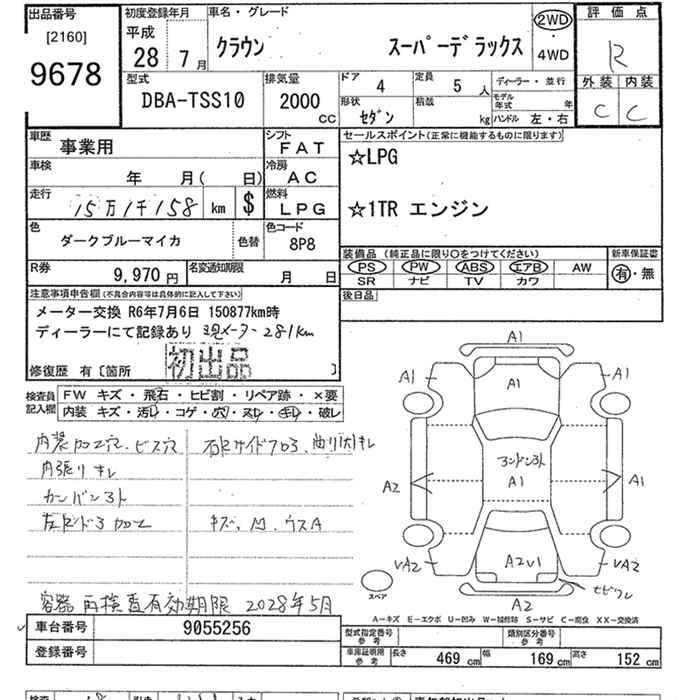 出品番号 初度登録年月 車名・グレード 2WD 評価点
[2160] 平成
9678 28年 7月 クラウン スーパーデラックス 4WD R
型式 排気量 ドア 4 定員 5人 ディーラー・並行 外装 内装
DBA-TSS10 2000cc 形状 セダン 積載 kg モデル年式 年 ハンドル 左・右 C C
車歴 事業用 シフト FAT セールスポイント(正常に機能するものに限ります)
車検 年 月( 日) 冷房 AC ☆LPG
走行 15万1千158 km $ 燃料 LPG ☆1TR エンジン
色 ダークブルーマイカ 色替 色コード 8P8
装備品 (純正品に限り○をつけてください) 新車保証書
R券 9,970円 名変通知期限 月 日 PS PW ABS エアB AW 有・無
SR ナビ TV カワ
注意事項申告欄(不具合内容等は具体的に記入して下さい) 後日品
メーター交換 R6年7月6日 150877km時
ディーラーにて記録あり 現メーター281km
修復歴 有〔箇所 〕 初出品
検査員記入欄 FW キズ・飛石・ヒビ割・リペア跡・×要
内装 キズ・汚れ・コゲ・穴・スレ・キレ・破レ
内装加工穴、ビス穴
内張りキレ
カンバン3ト
キズ、凹、ウスA
容器再検査有効期限 2028年5月
A1
A1 A1 A1
A1
A2 A1
VA2 A2V1 VA2
A2
スペア
A-キズ E-エクボ U-凹み W-補修跡 S-サビ C-腐食 XX-交換済
車台番号 9055256 型式指定番号参考 類別区分番号参考
登録番号 車庫証明用参考 長さ 469cm 幅 169cm 高さ 152cm